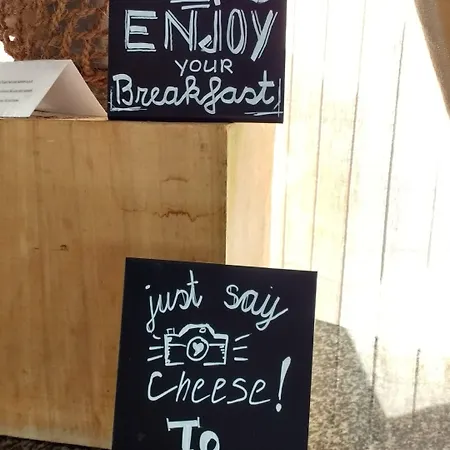 ENJOY
YOUR
Breakfast!
just say
Cheese!
To